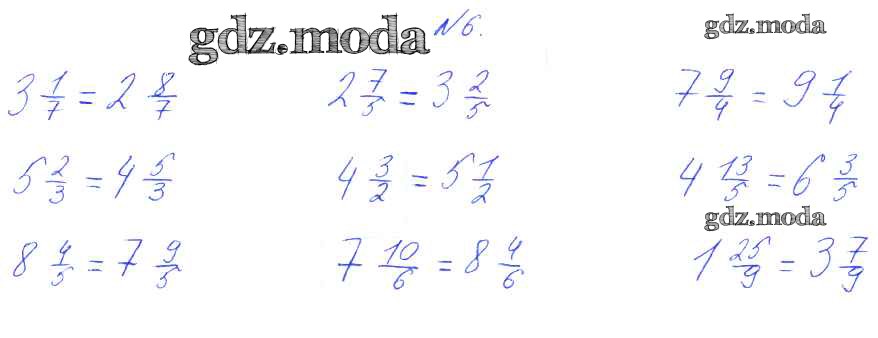 gdz.moda №6. gdz.moda
3 1/7 = 2 8/7 2 7/5 = 3 2/5 7 9/4 = 9 1/4
5 2/3 = 4 5/3 4 3/2 = 5 1/2 4 13/5 = 6 3/5
gdz.moda
8 4/5 = 7 9/5 7 10/6 = 8 4/6 1 25/9 = 3 7/9